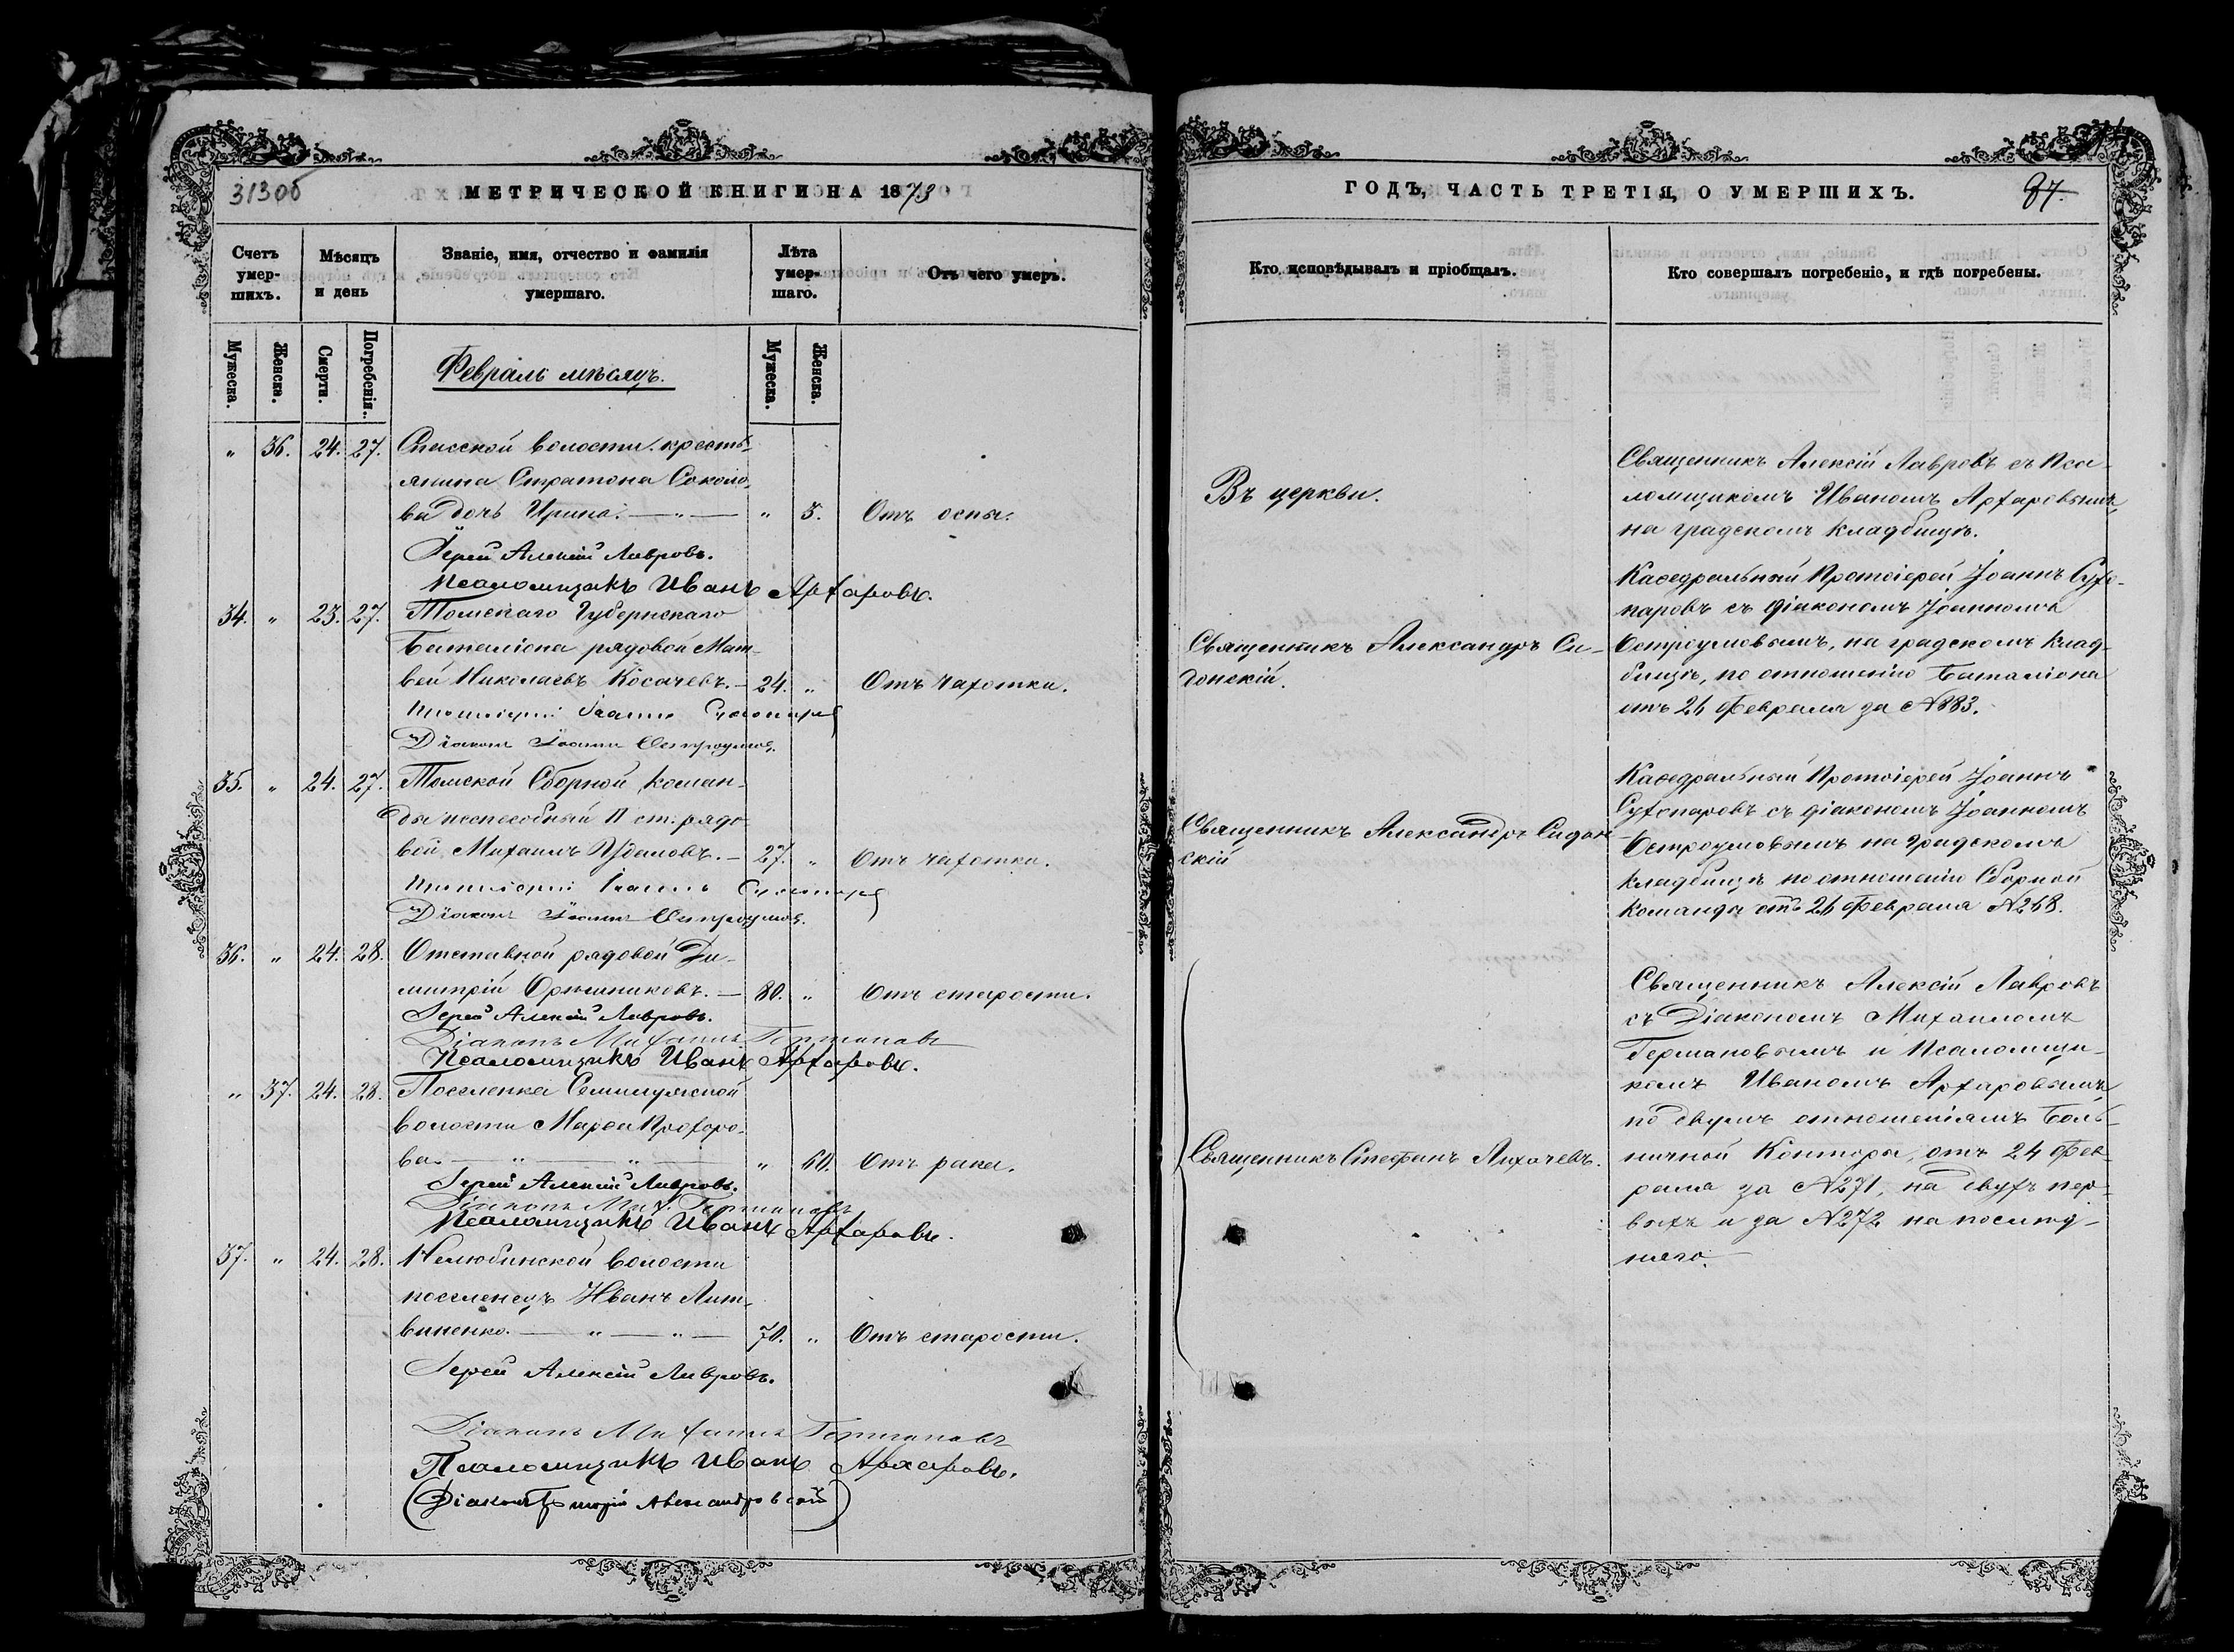 313об
МЕТРИЧЕСКОЙ КНИГИ НА 1873
Счетъ умер-шихъ.
Мѣсяцъ и день
Званіе, имя, отчество и фамилія умершаго.
Лѣта умер-шаго.
Отъ чего умеръ.
Мужеска.
Женска.
Смерти.
Погребенія.
Мужеска.
Женска.
Февраль мѣсяцъ.
" 36. 24. 27. Спасской волости кресть-
янина Стратона Соколо-
ва дочь Ирина. — " — " 5. Отъ оспы.
Іерей Алексій Лавровъ.
Псаломщикъ Иванъ Архаровъ.
34. " 23. 27. Томскаго Губернскаго
Баталіона рядовой Мат-
вей Николаевъ Косачевъ. — 24. " Отъ чахотки.
Протоіерей Іоаннъ
Діаконъ Іоаннъ Остроумовъ.
35. " 24. 27. Томской Сборной коман-
ды неспособный П ст. рядо-
вой Михаилъ Удаловъ. — 27. " Отъ чахотки.
Протоіерей Іоаннъ
Діаконъ Іоаннъ Остроумовъ.
36. " 24. 28. Отставной рядовой Ди-
митрій Орѣшниковъ. — 80. " Отъ старости.
Іерей Алексій Лавровъ.
Діаконъ Михаилъ Германовъ
Псаломщикъ Иванъ Архаровъ.
" 37. 24. 28. Поселенка Семилужной
волости Марѳа Прохоро-
ва. — " — " — " 60. Отъ рака.
Іерей Алексій Лавровъ.
Діаконъ Мих. Германовъ
Псаломщикъ Иванъ Архаровъ.
37. " 24. 28. Нелюбинской волости
поселенецъ Иванъ Лит-
виненко. — " — " — 70. " Отъ старости.
Іерей Алексій Лавровъ.
Діаконъ Михаилъ Германовъ
Псаломщикъ Иванъ Архаровъ.
(Діаконъ Александровскій)
ГОДЪ, ЧАСТЬ ТРЕТІЯ, О УМЕРШИХЪ.
87.
Кто исповѣдывалъ и пріобщалъ.
Кто совершалъ погребеніе, и гдѣ погребены.
Въ церкви.
Священникъ Алексій Лавровъ съ Пса-
ломщикомъ Иваномъ Архаровымъ,
на градскомъ кладбищѣ.
Священникъ Александръ Си-
донскій.
Каѳедральный Протоіерей Іоаннъ Сухо-
паровъ съ діакономъ Іоанномъ
Остроумовымъ, на градскомъ клад-
бищѣ, по отношенію Баталіона
отъ 26 Февраля за №883.
Священникъ Александръ Сидон-
скій
Каѳедральный Протоіерей Іоаннъ
Сухопаровъ съ діакономъ Іоанномъ
Остроумовымъ на градскомъ
кладбищѣ по отношенію Сборной
команды отъ 26 Февраля №268.
Священникъ Стефанъ Лихачевъ.
Священникъ Алексій Лавровъ
съ Діакономъ Михаиломъ
Германовымъ и Псаломщи-
комъ Иваномъ Архаровымъ
по двумъ отношеніямъ боль-
ничной Конторы, отъ 24 Фев-
раля за №271, на двухъ пер-
выхъ и за №272 на послѣд-
няго.